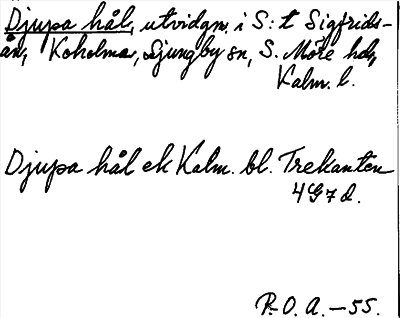 Djupa hål, utvidgn. i S:t Sigfrids-
ån, Koholma, Ljungby sn, S. Möre hd,
Kalm. l.
Djupa hål ek Kalm. bl. Trekanten
4G7d.
P.O.A.-55.